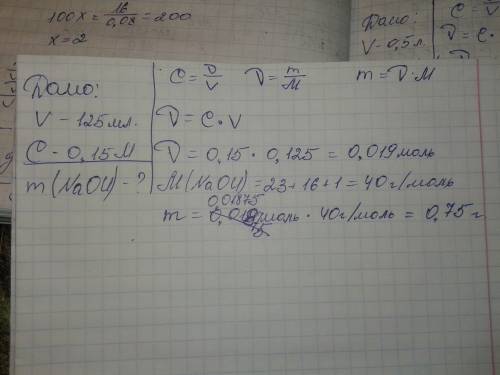 100x = 16/0,08 = 200
x = 2
Дано:
V - 0,5 л.
C = ν/V
ν = C ·
Дано:
V - 125 мл.
C - 0,15 M
m (NaOH) - ?
C = ν/V ν = m/M m = ν · M
ν = C · V
ν = 0,15 · 0,125 = 0,019 моль
M (NaOH) = 23 + 16 + 1 = 40 г/моль
m = 0,01875 моль · 40 г/моль = 0,75 г